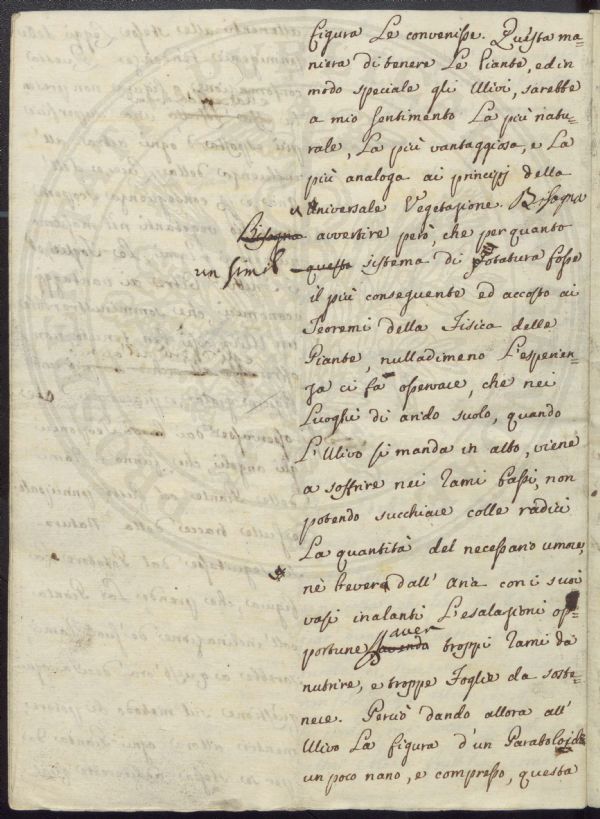 figura Le convenisse. Questa ma=
niera di tenere Le Piante, ed in
modo speciale gli Ulivi, sarebbe
a mio sentimento La più natu=
rale, La più vantaggiosa, e La
più analoga ai principj della
universale Vegetazione. Bisogna
Bisogna avvertire però, che per quanto
un simil questo sistema di potatura fosse
il più conseguente ed accosto ai
Teoremi della Fisica delle
Piante, nulladimeno L'esperien=
za ci fà osservare, che nei
Luoghi di arido suolo, quando
L'Ulivo si manda in alto, viene
a soffrire nei rami bassi, non
potendo succhiare colle radici
La quantità del necessario umore,
nè bevere dall' aria con i suoi
vasi inalanti L'esalazioni op=
portune per aver avendo troppi rami da
nutrire, e troppe Foglie da soste=
nere. Perciò dando allora all'
Ulivo La figura d'un Paraboloide
un poco nano, e compresso, questa